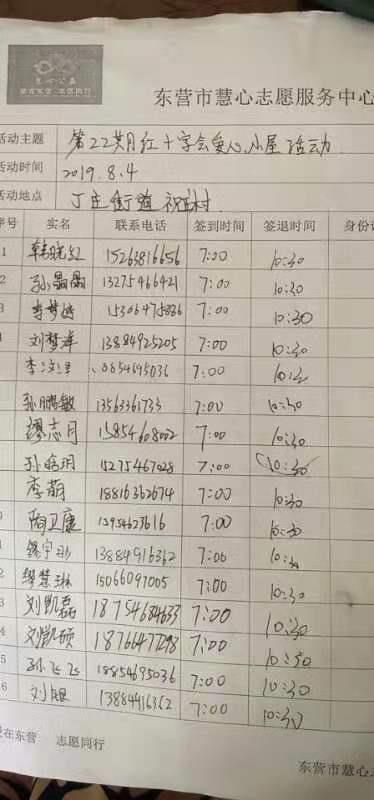 东营市慧心志愿服务中心
活动主题 第22期月红十字会爱心小屋活动
活动时间 2019.8.4
活动地点 丁庄街道 祝王村
序号 实名 联系电话 签到时间 签退时间 身份证
1 韩晓红 15263816656 7:00 10:30
2 孙晶晶 13275466421 7:00 10:30
3 15306475836 7:00 10:30
刘梦泽 13884925205 7:00 10:30
7:00
孙鹏敏 13563361733 7:00 10:30
廖志月 15854608002 7:00 10:30
15275467028 7:00 10:30
李萌 18816362674 7:00 10:30
陶卫康 7:00 10:30
13884916362 7:00
2 15066097005 7:00 10:30
3 刘凯磊 18754684633 7:00 10:30
4 刘凯硕 18766477298 7:00 10:30
5 孙飞飞 18854695036 7:00 10:30
6 刘银 13884416362 7:00 10:30
爱在东营 志愿同行
东营市慧心志